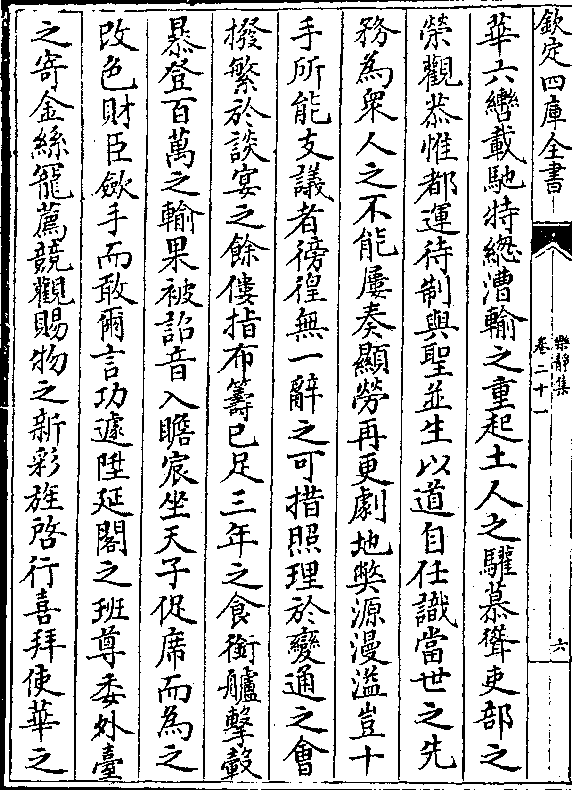 欽定四庫全書
樂靜集
卷二十一
六
華六轡載馳特總漕輸之重起士人之驩慕聳吏部之
榮觀恭惟都運待制與聖並生以道自任識當世之先
務為衆人之不能屢奏顯勞再更劇地獘源漫溢豈十
手所能支議者徬徨無一辭之可措照理於變通之會
撥繁於談宴之餘僂指布籌已足三年之食銜艫擊轂
暴登百萬之輸果被詔音入瞻宸坐天子促席而為之
改色財臣斂手而敢爾言功遽陞延閣之班尊委外臺
之寄金絲籠薦競觀賜物之新彩旌啓行喜拜使華之